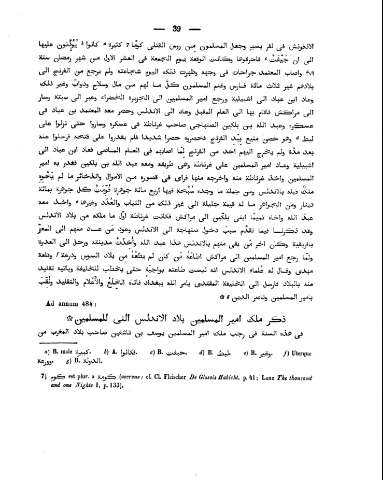 — 39 —
الاذفونش فى نفر يسير وجعل المسلمون من روس القتلى كومًا كثيرة كانوا يؤذنون عليها
الى ان جيفت فاحرقوها وكانت الوقعة يوم الجمعة فى العشر الاول من شهر رمضان سنة
واصاب المعتمد جراحات فى وجهه وظهرت ذلك اليوم شجاعته ولم يرجع من الفرنج الى
بلادهم غير ثلاث مائة فارس وغنم المسلمون كل ما لهم من مال وسلاح ودواب وغير ذلك
وعاد ابن عباد الى اشبيلية ورجع امير المسلمين الى الجزيرة الخضراء وعبر الى سبتة وسار
الى مراكش فاقام بها الى العام المقبل وعاد الى الاندلس وحضر معه المعتمد بن عباد فى
عسكره وعبد الله بن بلكين الصنهاجى صاحب غرناطة فى عسكره وساروا حتى نزلوا على
ليط وهو حصن منيع بيد الفرنج فحصروه حصرا شديدا فلم يقدروا على فتحه فرحلوا عنه
بعد مدة ولم يخرج اليهم احد من الفرنج لما اصابهم فى العام الماضى فعاد ابن عباد الى
اشبيلية وعاد امير المسلمين على غرناطة وهى طريقه ومعه عبد الله بن بلكين فغدر به امير
المسلمين واخذ غرناطة منه واخرجه منها فراى فى قصوره من الاموال والذخائر ما لم يحوه
ملك قبله بالاندلس ومن جملة ما وجده سبحة فيها اربع مائة جوهرة قومت كل جوهرة بمائة
دينار ومن الجواهر ما له قيمة جليلة الى غير ذلك من الثياب والعدد وغيره واخذ معه
عبد الله واخاه تميما ابنى بلكين الى مراكش فكانت غرناطة اول ما ملكه من بلاد الاندلس
وقد ذكرنا فيما تقدم سبب دخول صنهاجة الى الاندلس وعود من عاد منهم الى المعز
بافريقية وكان اخر من بقى منهم بالاندلس هذا عبد الله وأخذت مدينته ورحل الى العدوة
ولما رجع امير المسلمين الى مراكش اطاعه من كان لم يطعه من بلاد السوس
مهدى وقال له علماء الاندلس انه ليست طاعته بواجبة حتى يخطب للخليفة وياتيه تقليد
منه بالبلاد فارسل الى الخليفة المقتدى بامر الله ببغداد فاتاه الخلع والاعلام والتقليد ولقب
بامير المسلمين وناصر الدين *
Ad annum 484:
ذكر ملك امير المسلمين بلاد الاندلس التى للمسلمين *
فى هذه السنة فى رجب ملك امير المسلمين يوسف بن تاشفين صاحب بلاد المغرب من
7) كوم est plur. a كومة (acervus; cf. Cl. Fleischer De Glossis Habicht. p. 41; Lane The thousand
and one Nights I, p. 133).